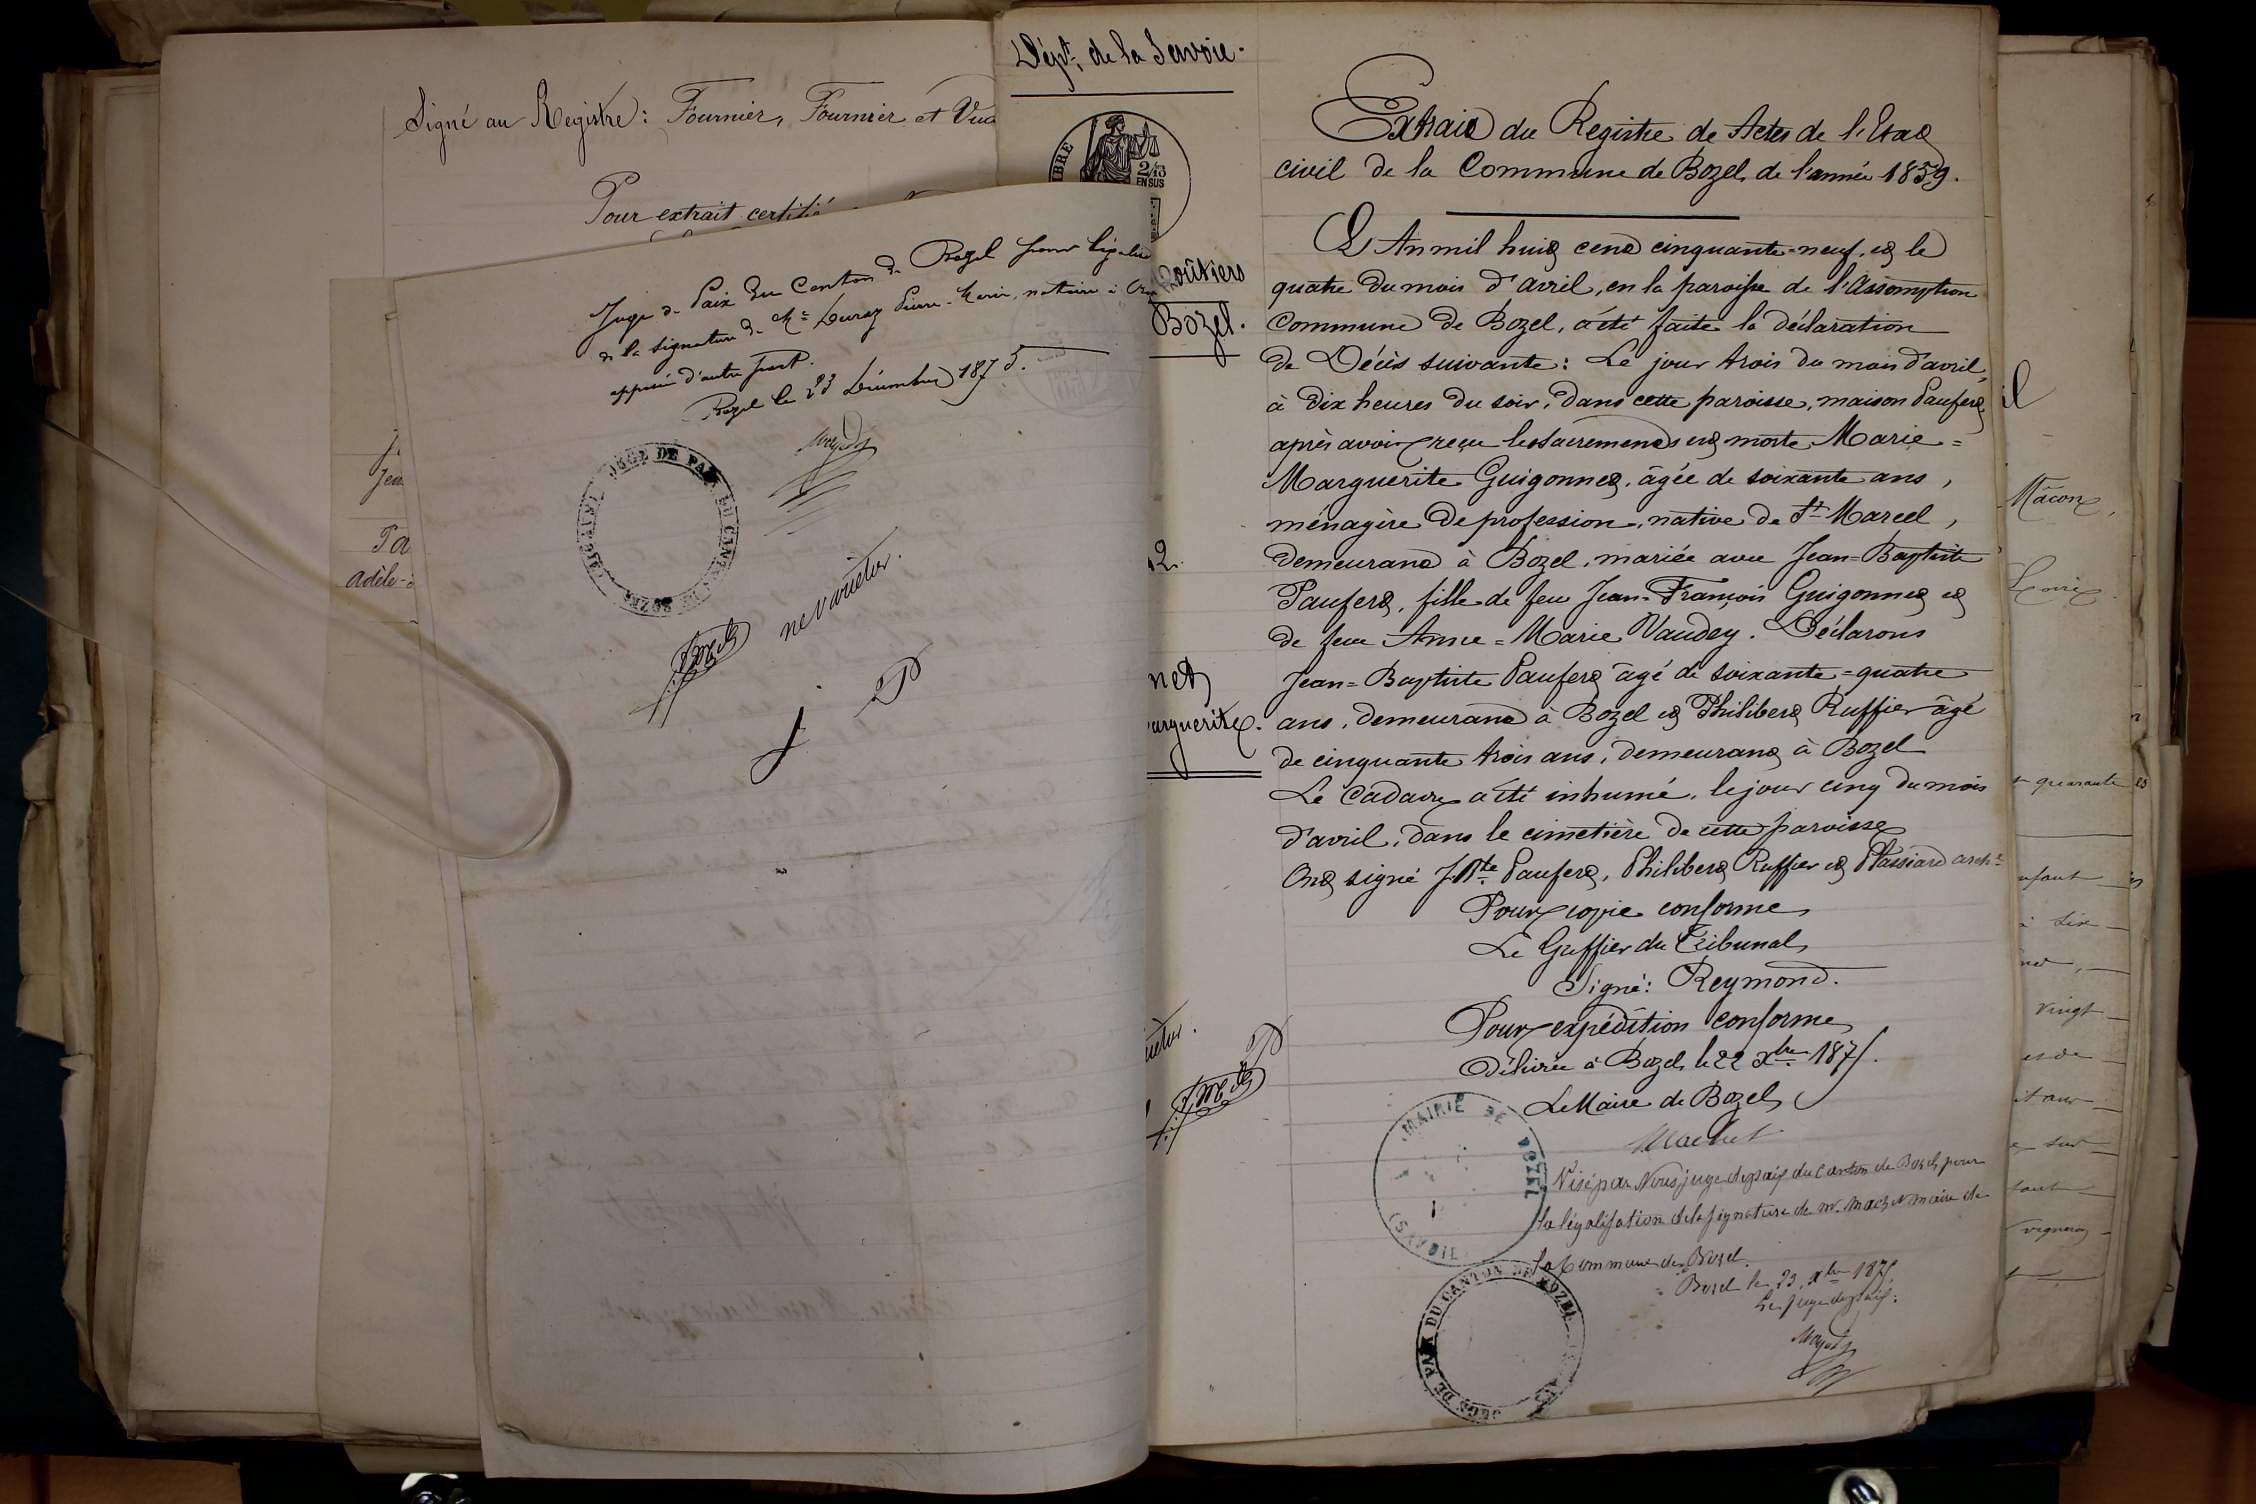 Signé au Registre: Fournier, Fournier et
Pour extrait certifié
Juge de Paix du Canton de Bozel pour
de la signature de Me Duraz Pierre-Marie, notaire à
apposée d'autre part.
Bozel le 23 Décembre 1875.
JUGE DE PAIX DU CANTON DE BOZEL
ne varietur.
Jea
Pa
Adèle-
Dépt. de la Savoie.
2/10
EN SUS
oûtiers
Bozel.
2.
net
arguerite.
Extrait du Registre de Actes de l'Etat
civil de la Commune de Bozel, de l'année 1859.
L'An mil huit cent cinquante-neuf, et le
quatre du mois d'avril, en la paroisse de l'Assomption
Commune de Bozel, a été faite la déclaration
de Décès suivante: Le jour trois du mois d'avril,
à dix heures du soir, dans cette paroisse, maison Paufert
après avoir reçu les sacrements est morte Marie=
Marguerite Guigonnet, âgée de soixante ans,
ménagère de profession, native de St Marcel,
demeurant à Bozel, mariée avec Jean=Baptiste
Paufert, fille de feu Jean-François Guigonnet et
de feue Anne=Marie Vaudey. Déclarons
Jean=Baptiste Paufert âgé de soixante=quatre
ans, demeurant à Bozel et Philibert Ruffier âgé
de cinquante trois ans, demeurant à Bozel
Le Cadavre a été inhumé, le jour cinq du mois
d'avril, dans le cimetière de cette paroisse
Ont signé J Bte Paufert, Philibert Ruffier et Plassiard
Pour copie conforme
Le Greffier du Tribunal,
Signé: Reymond.
Pour expédition conforme
Délivrée à Bozel, le 22 Xbre 1875.
Le Maire de Bozel,
Machet
MAIRIE DE BOZEL
(SAVOIE)
Visé par Nous juge de paix du Canton de Bozel, pour
la légalisation de la signature de Mr. Machet maire de
la Commune de Bozel.
Bozel le 23 Xbre 1875.
Le Juge de paix:
JUGE DE PAIX DU CANTON DE BOZEL
il
Mâcon,
quarante
nfant
vingt
vigneron